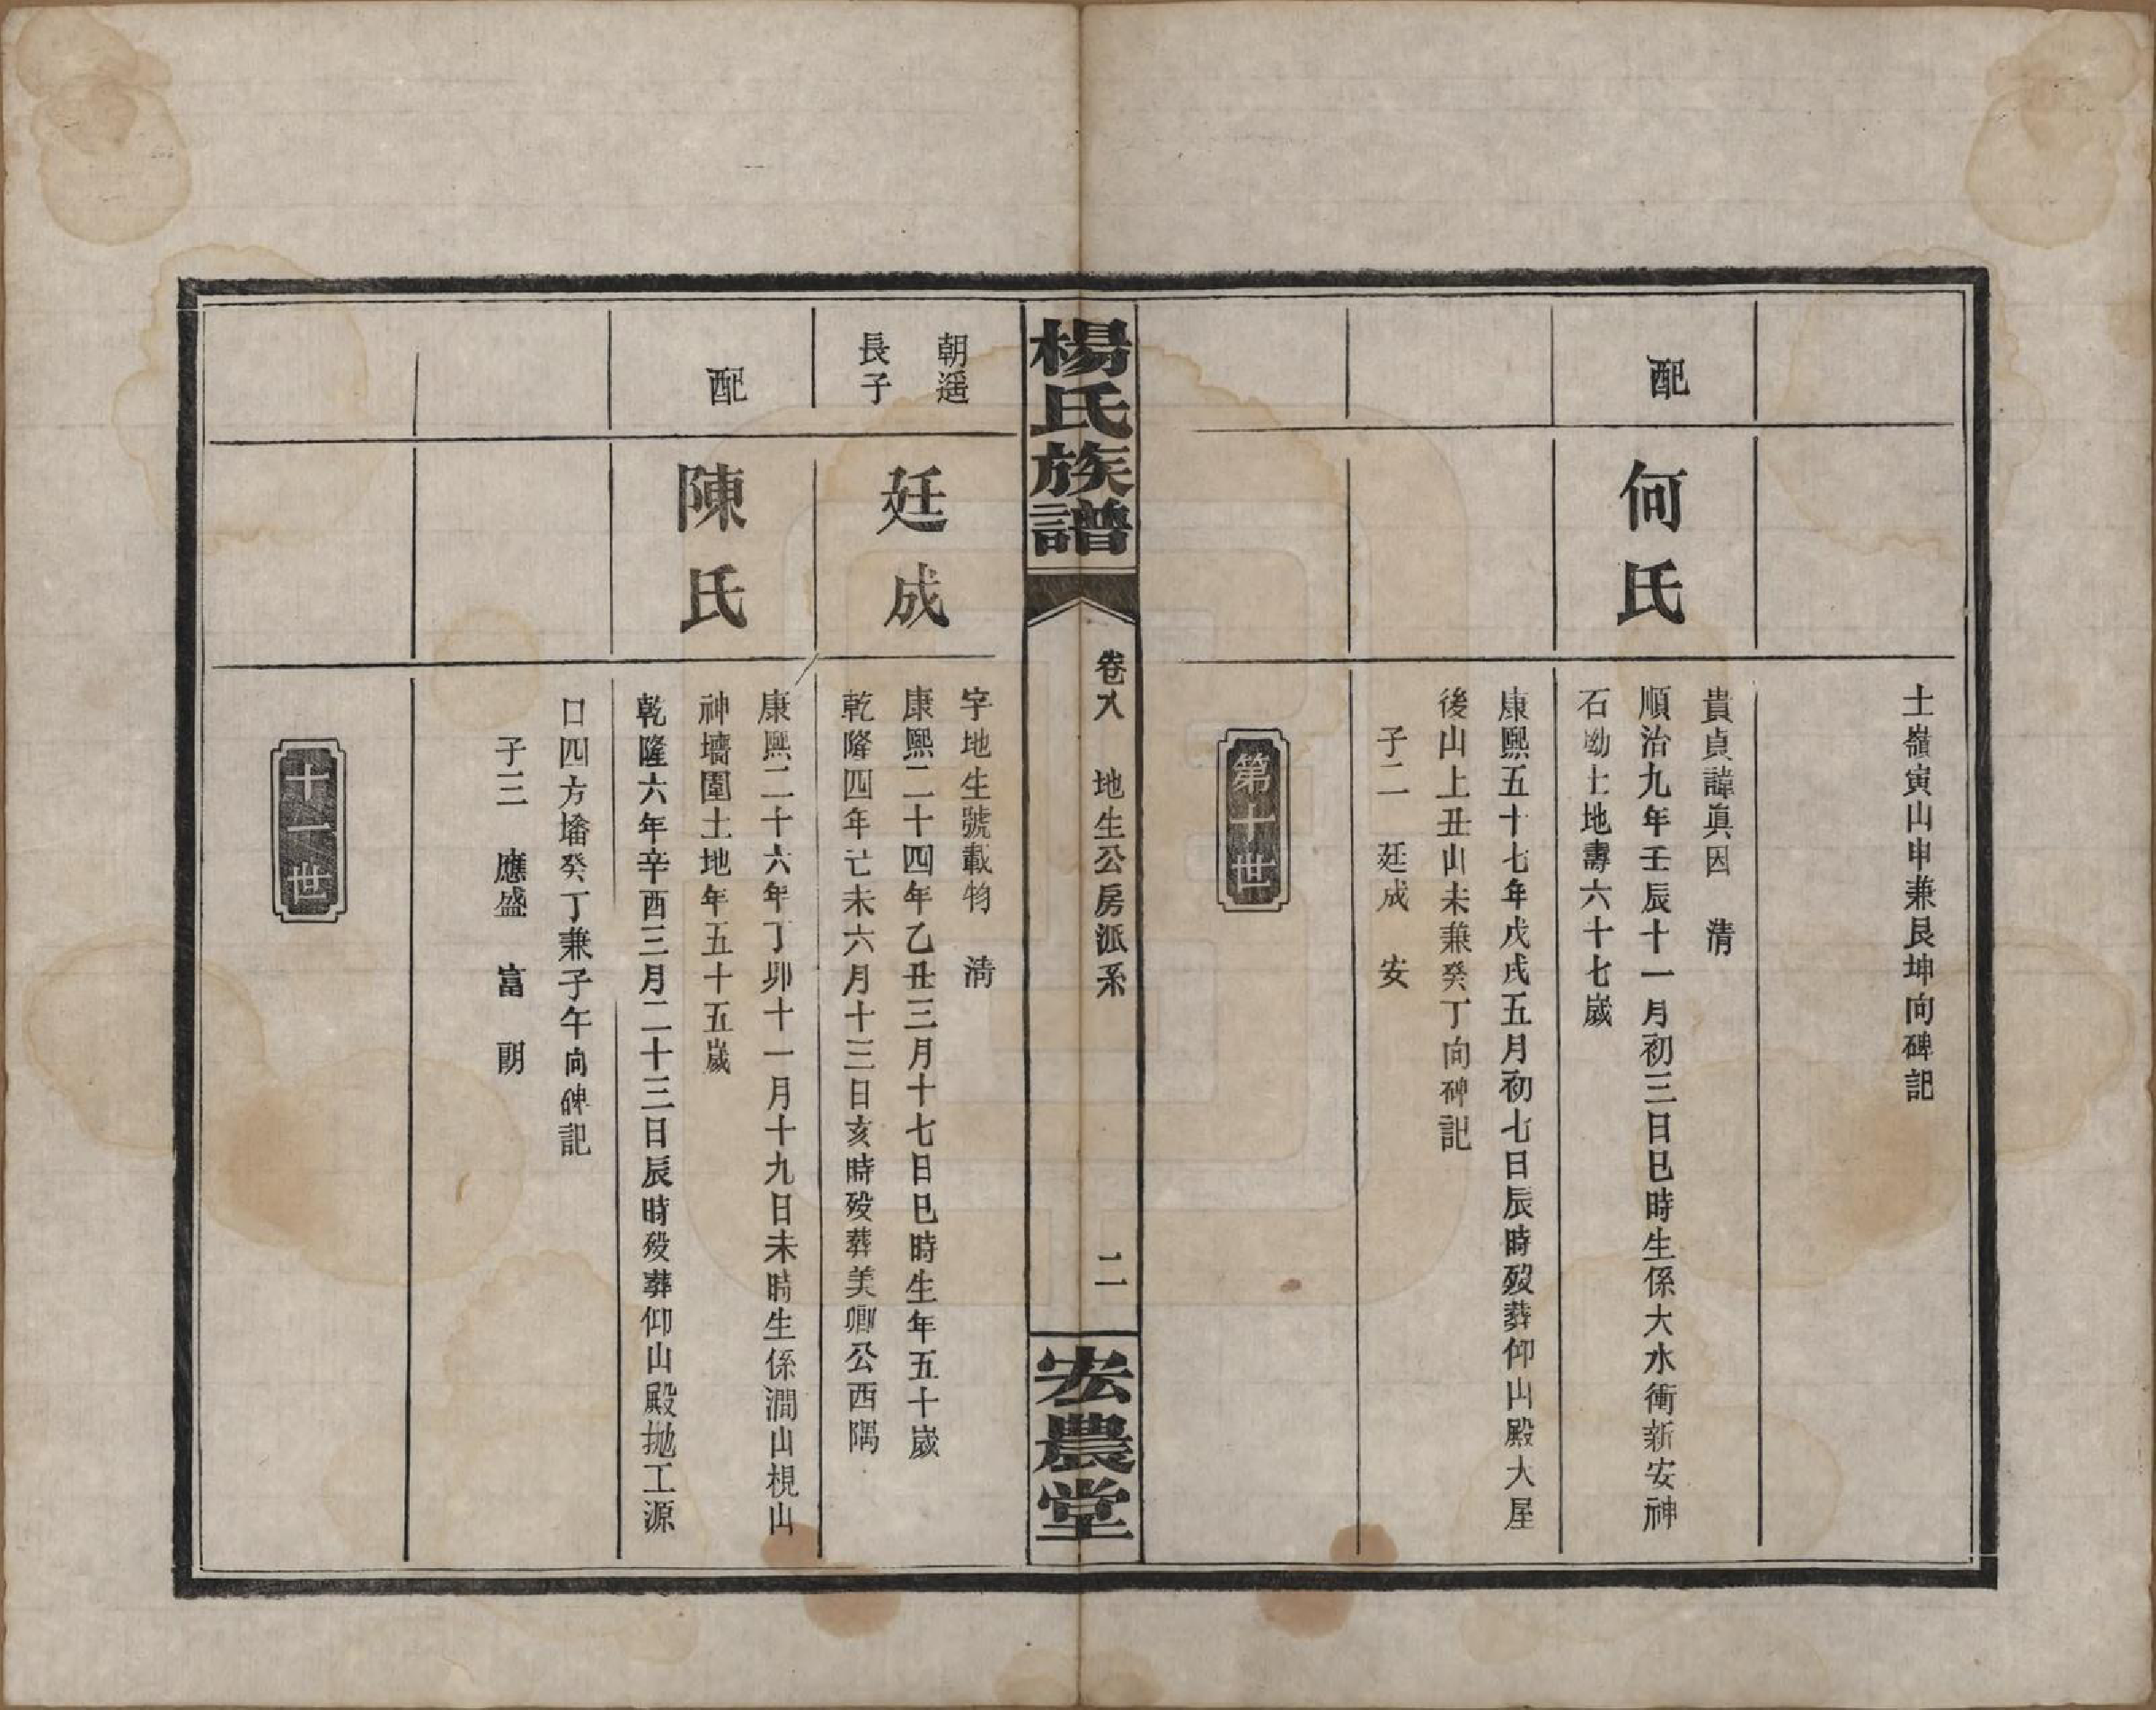 土嶺寅山申兼艮坤向碑記
配
何氏
貴貞諱眞因　清
順治九年壬辰十一月初三日巳時生係大水衝新安神
石坳土地壽六十七歲
康熙五十七年戊戌五月初七日辰時歿葬仰山殿大屋
後山上丑山未兼癸丁向碑記
子二　廷成　安
第十世
楊氏族譜
卷八　地生公房派系
二
宏農堂
朝遥
長子
廷成
字地生號載物　清
康熙二十四年乙丑三月十七日巳時生年五十歲
乾隆四年亡未六月十三日亥時歿葬美卿公西隅
配
陳氏
康熙二十六年丁卯十一月十九日未時生係澗山梘山
神墻圍土地年五十五歲
乾隆六年辛酉三月二十三日辰時歿葬仰山殿拋工源
口四方墦癸丁兼子午向碑記
子三　應盛　富　朗
十一世